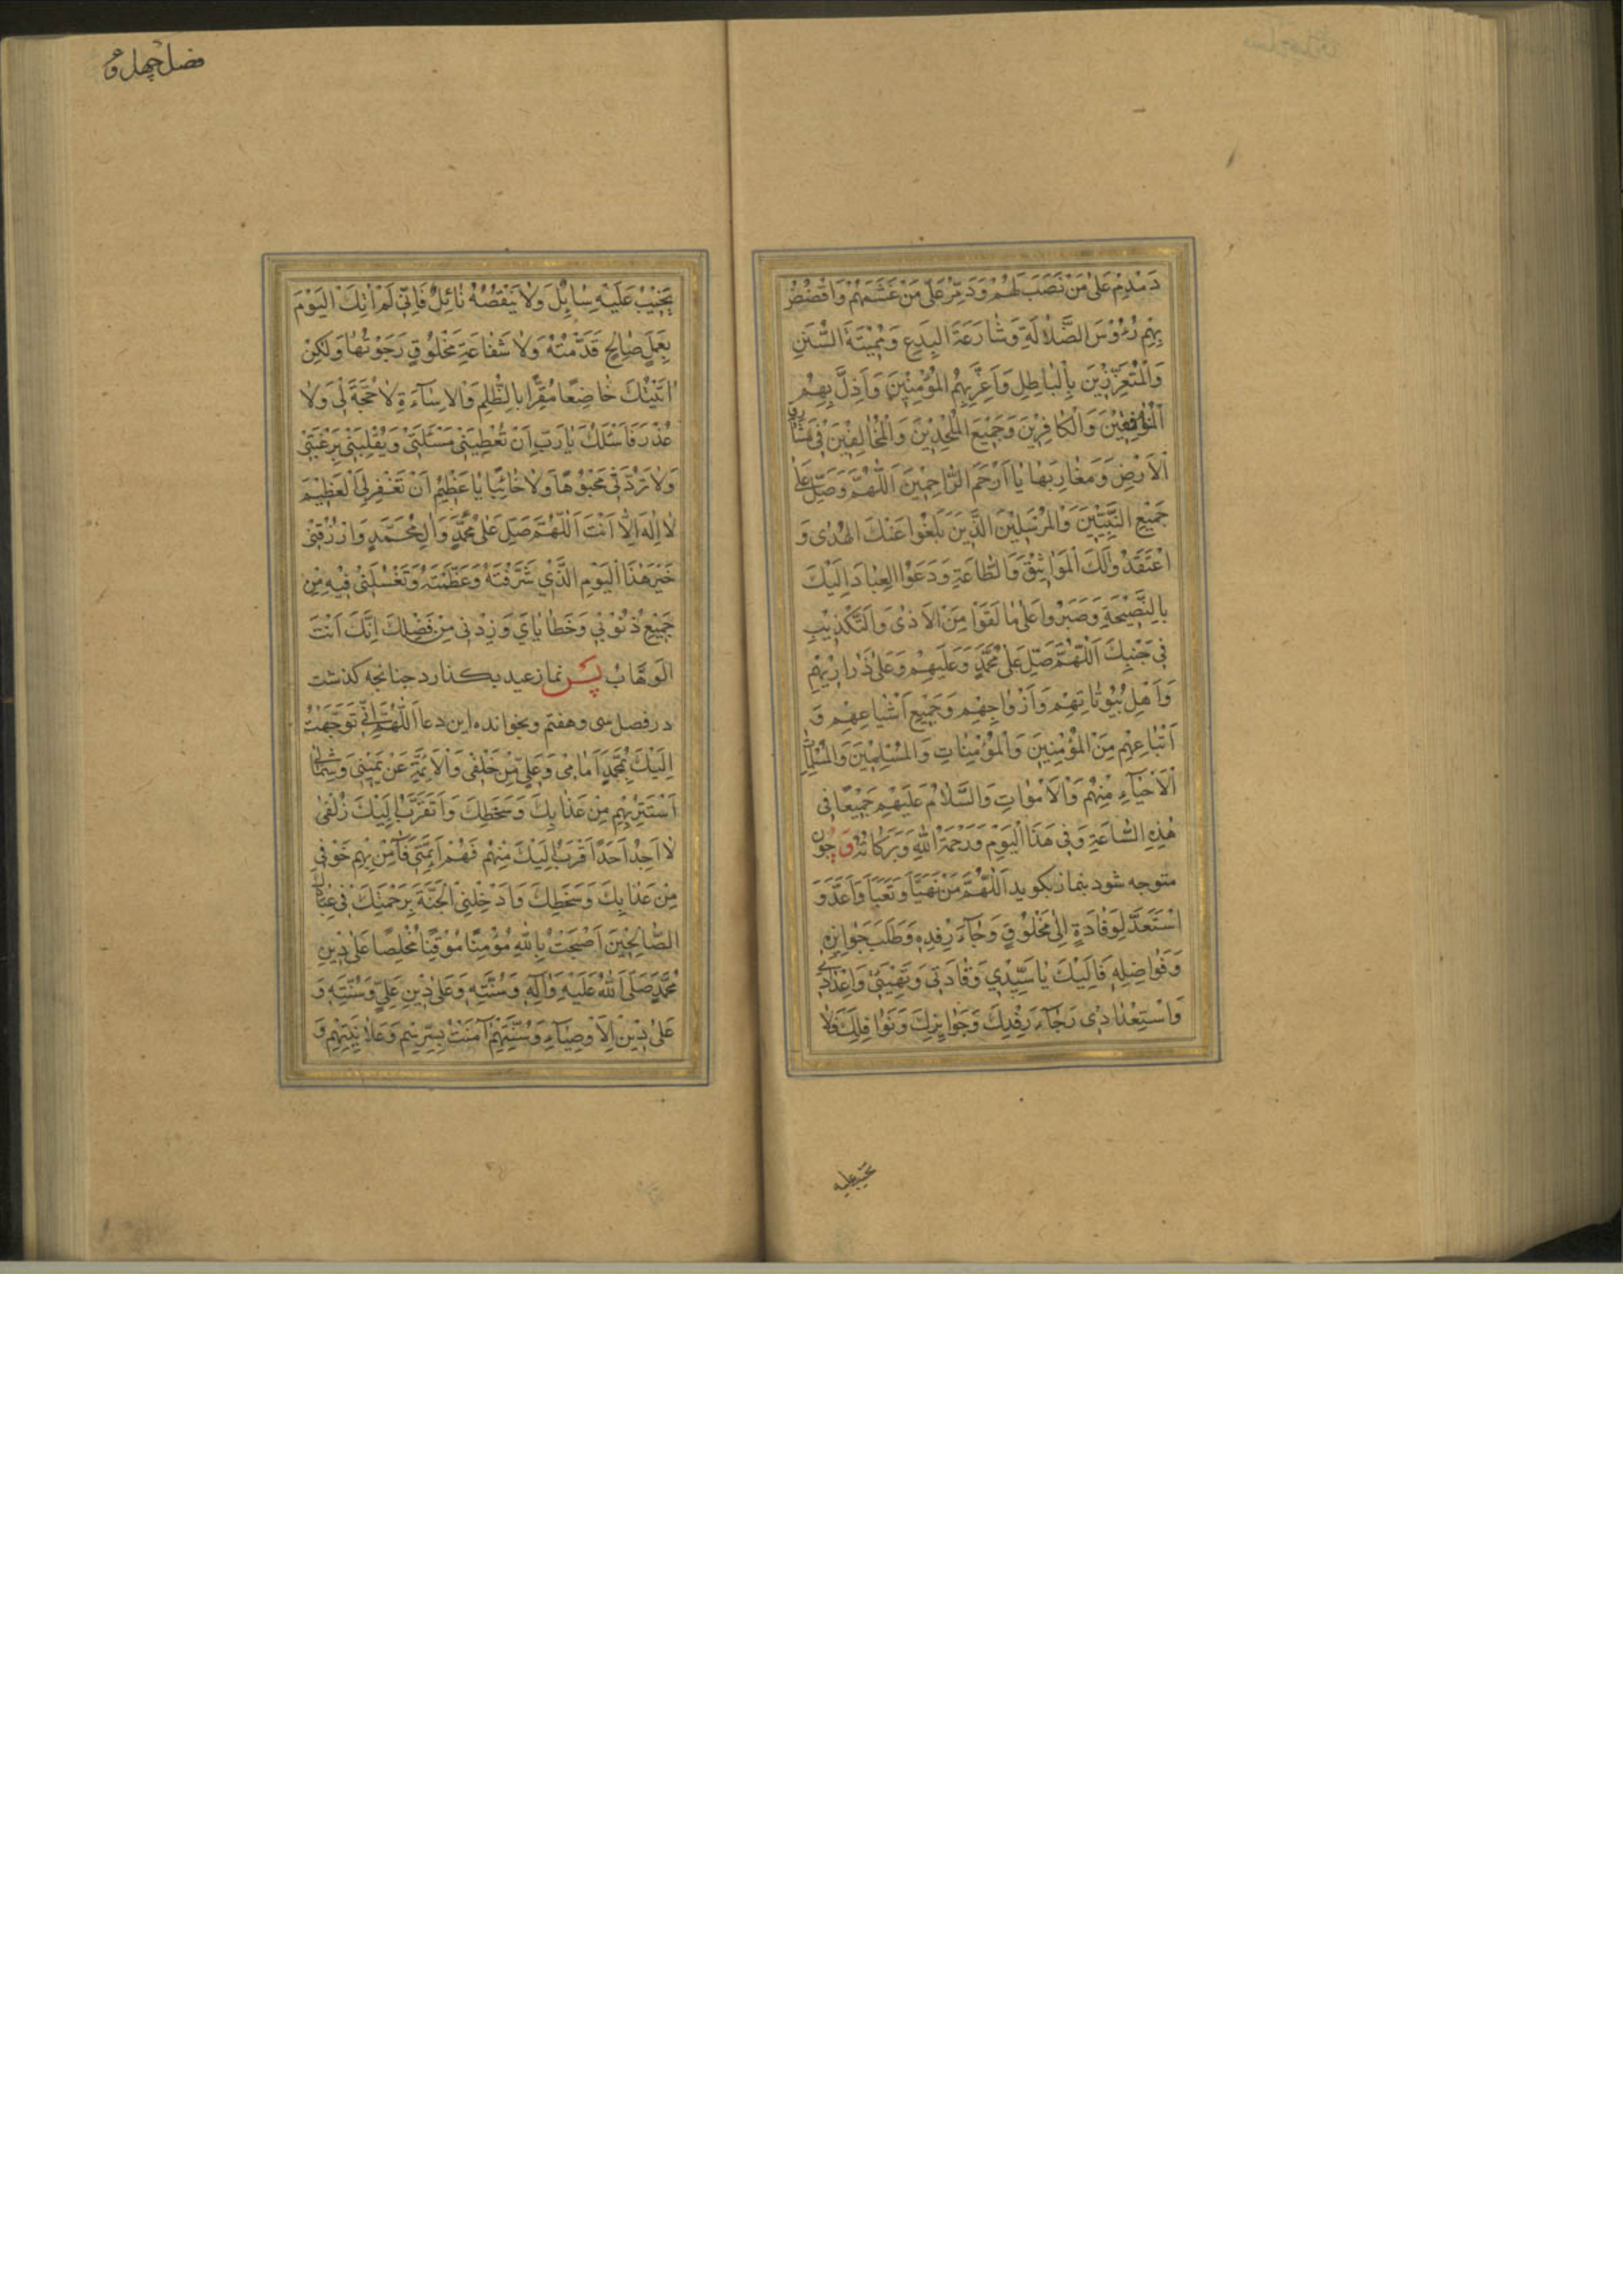 دَمْدِمْ عَلٰى مَنْ نَصَبَ لَهُمْ وَدَمِّرْ عَلٰى مَنْ غَشَمَهُمْ وَاقْضُضْ
بِهِمْ رُؤُوْسَ الضَّلاٰلَةِ وَشٰارِعَةَ الْبِدَعِ وَمُمِيْتَةَ السُّنَنِ
وَالْمُتَعَزِّزِيْنَ بِالْبٰاطِلِ وَاَعِزَّ بِهِمُ الْمُؤْمِنِيْنَ وَاَذِلَّ بِهِمُ
الْمُنٰافِقِيْنَ وَالْكٰافِرِيْنَ وَجَمِيْعَ الْمُلْحِدِيْنَ وَالْمُخٰالِفِيْنَ فِي مَشٰارِقِ
الْاَرْضِ وَمَغٰارِبِهٰا يٰا اَرْحَمَ الرّٰاحِمِيْنَ اَللّٰهُمَّ وَصَلِّ عَلٰى
جَمِيْعِ النَّبِيِّيْنَ وَالْمُرْسَلِيْنَ الَّذِيْنَ بَلَّغُوا عَنْكَ الْهُدٰى وَ
اعْتَقَدُوْا لَكَ الْمَوٰاثِيْقَ وَالطّٰاعَةِ وَدَعَوُا الْعِبٰادَ اِلَيْكَ
بِالنَّصِيْحَةِ وَصَبَرُوا عَلٰى مٰا لَقَوْا مِنَ الْاَذٰى وَالتَّكْذِيْبِ
فِي جَنْبِكَ اَللّٰهُمَّ صَلِّ عَلٰى مُحَمَّدٍ وَعَلَيْهِمْ وَعَلٰى ذَرٰارِيْهِمْ
وَاَهْلِ بُيُوْتٰاتِهِمْ وَاَزْوٰاجِهِمْ وَجَمِيْعِ اَشْيٰاعِهِمْ وَ
اَتْبٰاعِهِمْ مِنَ الْمُؤْمِنِيْنَ وَالْمُؤْمِنٰاتِ وَالْمُسْلِمِيْنَ وَالْمُسْلِمٰاتِ
الْاَحْيٰاءِ مِنْهُمْ وَالْاَمْوٰاتِ وَالسَّلاٰمُ عَلَيْهِمْ جَمِيْعًا فِي
هٰذِهِ السّٰاعَةِ وَفِي هٰذَا الْيَوْمِ وَرَحْمَةُ اللّٰهِ وَبَرَكٰاتُهُ وَ چون
متوجه شود بنماز بكويد اَللّٰهُمَّ مَنْ تَهَيَّاَ وَتَعَبَّاَ وَاَعَدَّ وَ
اسْتَعَدَّ لِوِفٰادَةٍ اِلٰى مَخْلُوْقٍ رَجٰاءَ رِفْدِهِ وَطَلَبَ جَوٰائِزِهِ
وَفَوٰاضِلِهِ فَاِلَيْكَ يٰا سَيِّدِي وِفٰادَتِي وَتَهْيِئَتِي وَاِعْدٰادِي
وَاسْتِعْدٰادِي رَجٰاءَ رِفْدِكَ وَجَوٰائِزِكَ وَنَوٰافِلِكَ فَلاٰ
يخيب عليه
فصل چهل و
يَخِيْبُ عَلَيْهِ سٰائِلٌ وَلاٰ يَنْقُصُهُ نٰائِلٌ فَاِنِّي لَمْ اٰتِكَ الْيَوْمَ
بِعَمَلٍ صٰالِحٍ قَدَّمْتُهُ وَلاٰ شَفٰاعَةِ مَخْلُوْقٍ رَجَوْتُهٰا وَلٰكِنْ
اَتَيْتُكَ خٰاضِعًا مُقِرًّا بِالظُّلْمِ وَالْاِسٰاءَةِ لاٰ حُجَّةَ لِي وَلاٰ
عُذْرَ فَاَسْئَلُكَ يٰا رَبِّ اَنْ تُعْطِيَنِي مَسْئَلَتِي وَتُقْلِبَنِي بِرَغْبَتِي
وَلاٰ تَرُدَّنِي مَجْبُوْهًا وَلاٰ خٰائِبًا يٰا عَظِيْمُ اَنْ تَغْفِرَ لِيَ الْعَظِيْمَ
لاٰ اِلٰهَ اِلاّٰ اَنْتَ اَللّٰهُمَّ صَلِّ عَلٰى مُحَمَّدٍ وَاٰلِ مُحَمَّدٍ وَارْزُقْنِي
خَيْرَ هٰذَا الْيَوْمِ الَّذِي شَرَّفْتَهُ وَعَظَّمْتَهُ وَتَغْسِلَنِي فِيْهِ مِنْ
جَمِيْعِ ذُنُوْبِي وَخَطٰايٰايَ وَزِدْنِي مِنْ فَضْلِكَ اِنَّكَ اَنْتَ
الْوَهّٰابُ پس نماز عيد بكذارد جنانجه كذشت
در فصل سى وهفتم وبخواند اين دعا اَللّٰهُمَّ اِنِّي تَوَجَّهْتُ
اِلَيْكَ بِمُحَمَّدٍ اَمٰامِي وَعَلِيٍّ مِنْ خَلْفِي وَالْاَئِمَّةِ عَنْ يَمِيْنِي وَشِمٰالِي
اَسْتَتِرُ بِهِمْ مِنْ عَذٰابِكَ وَسَخَطِكَ وَاَتَقَرَّبُ اِلَيْكَ زُلْفٰى
لاٰ اَجِدُ اَحَدًا اَقْرَبَ اِلَيْكَ مِنْهُمْ فَهُمْ اَئِمَّتِي فَاٰمِنْ بِهِمْ خَوْفِي
مِنْ عَذٰابِكَ وَسَخَطِكَ وَاَدْخِلْنِي الْجَنَّةَ بِرَحْمَتِكَ فِي عِبٰادِكَ
الصّٰالِحِيْنَ اَصْبَحْتُ بِاللّٰهِ مُؤْمِنًا مُوْقِنًا مُخْلِصًا عَلٰى دِيْنِ
مُحَمَّدٍ صَلَّى اللّٰهُ عَلَيْهِ وَاٰلِهِ وَسُنَّتِهِ وَعَلٰى دِيْنِ عَلِيٍّ وَسُنَّتِهِ وَ
عَلٰى دِيْنِ الْاَوْصِيٰاءِ وَسُنَّتِهِمْ اٰمَنْتُ بِسِرِّهِمْ وَعَلاٰنِيَتِهِمْ وَ